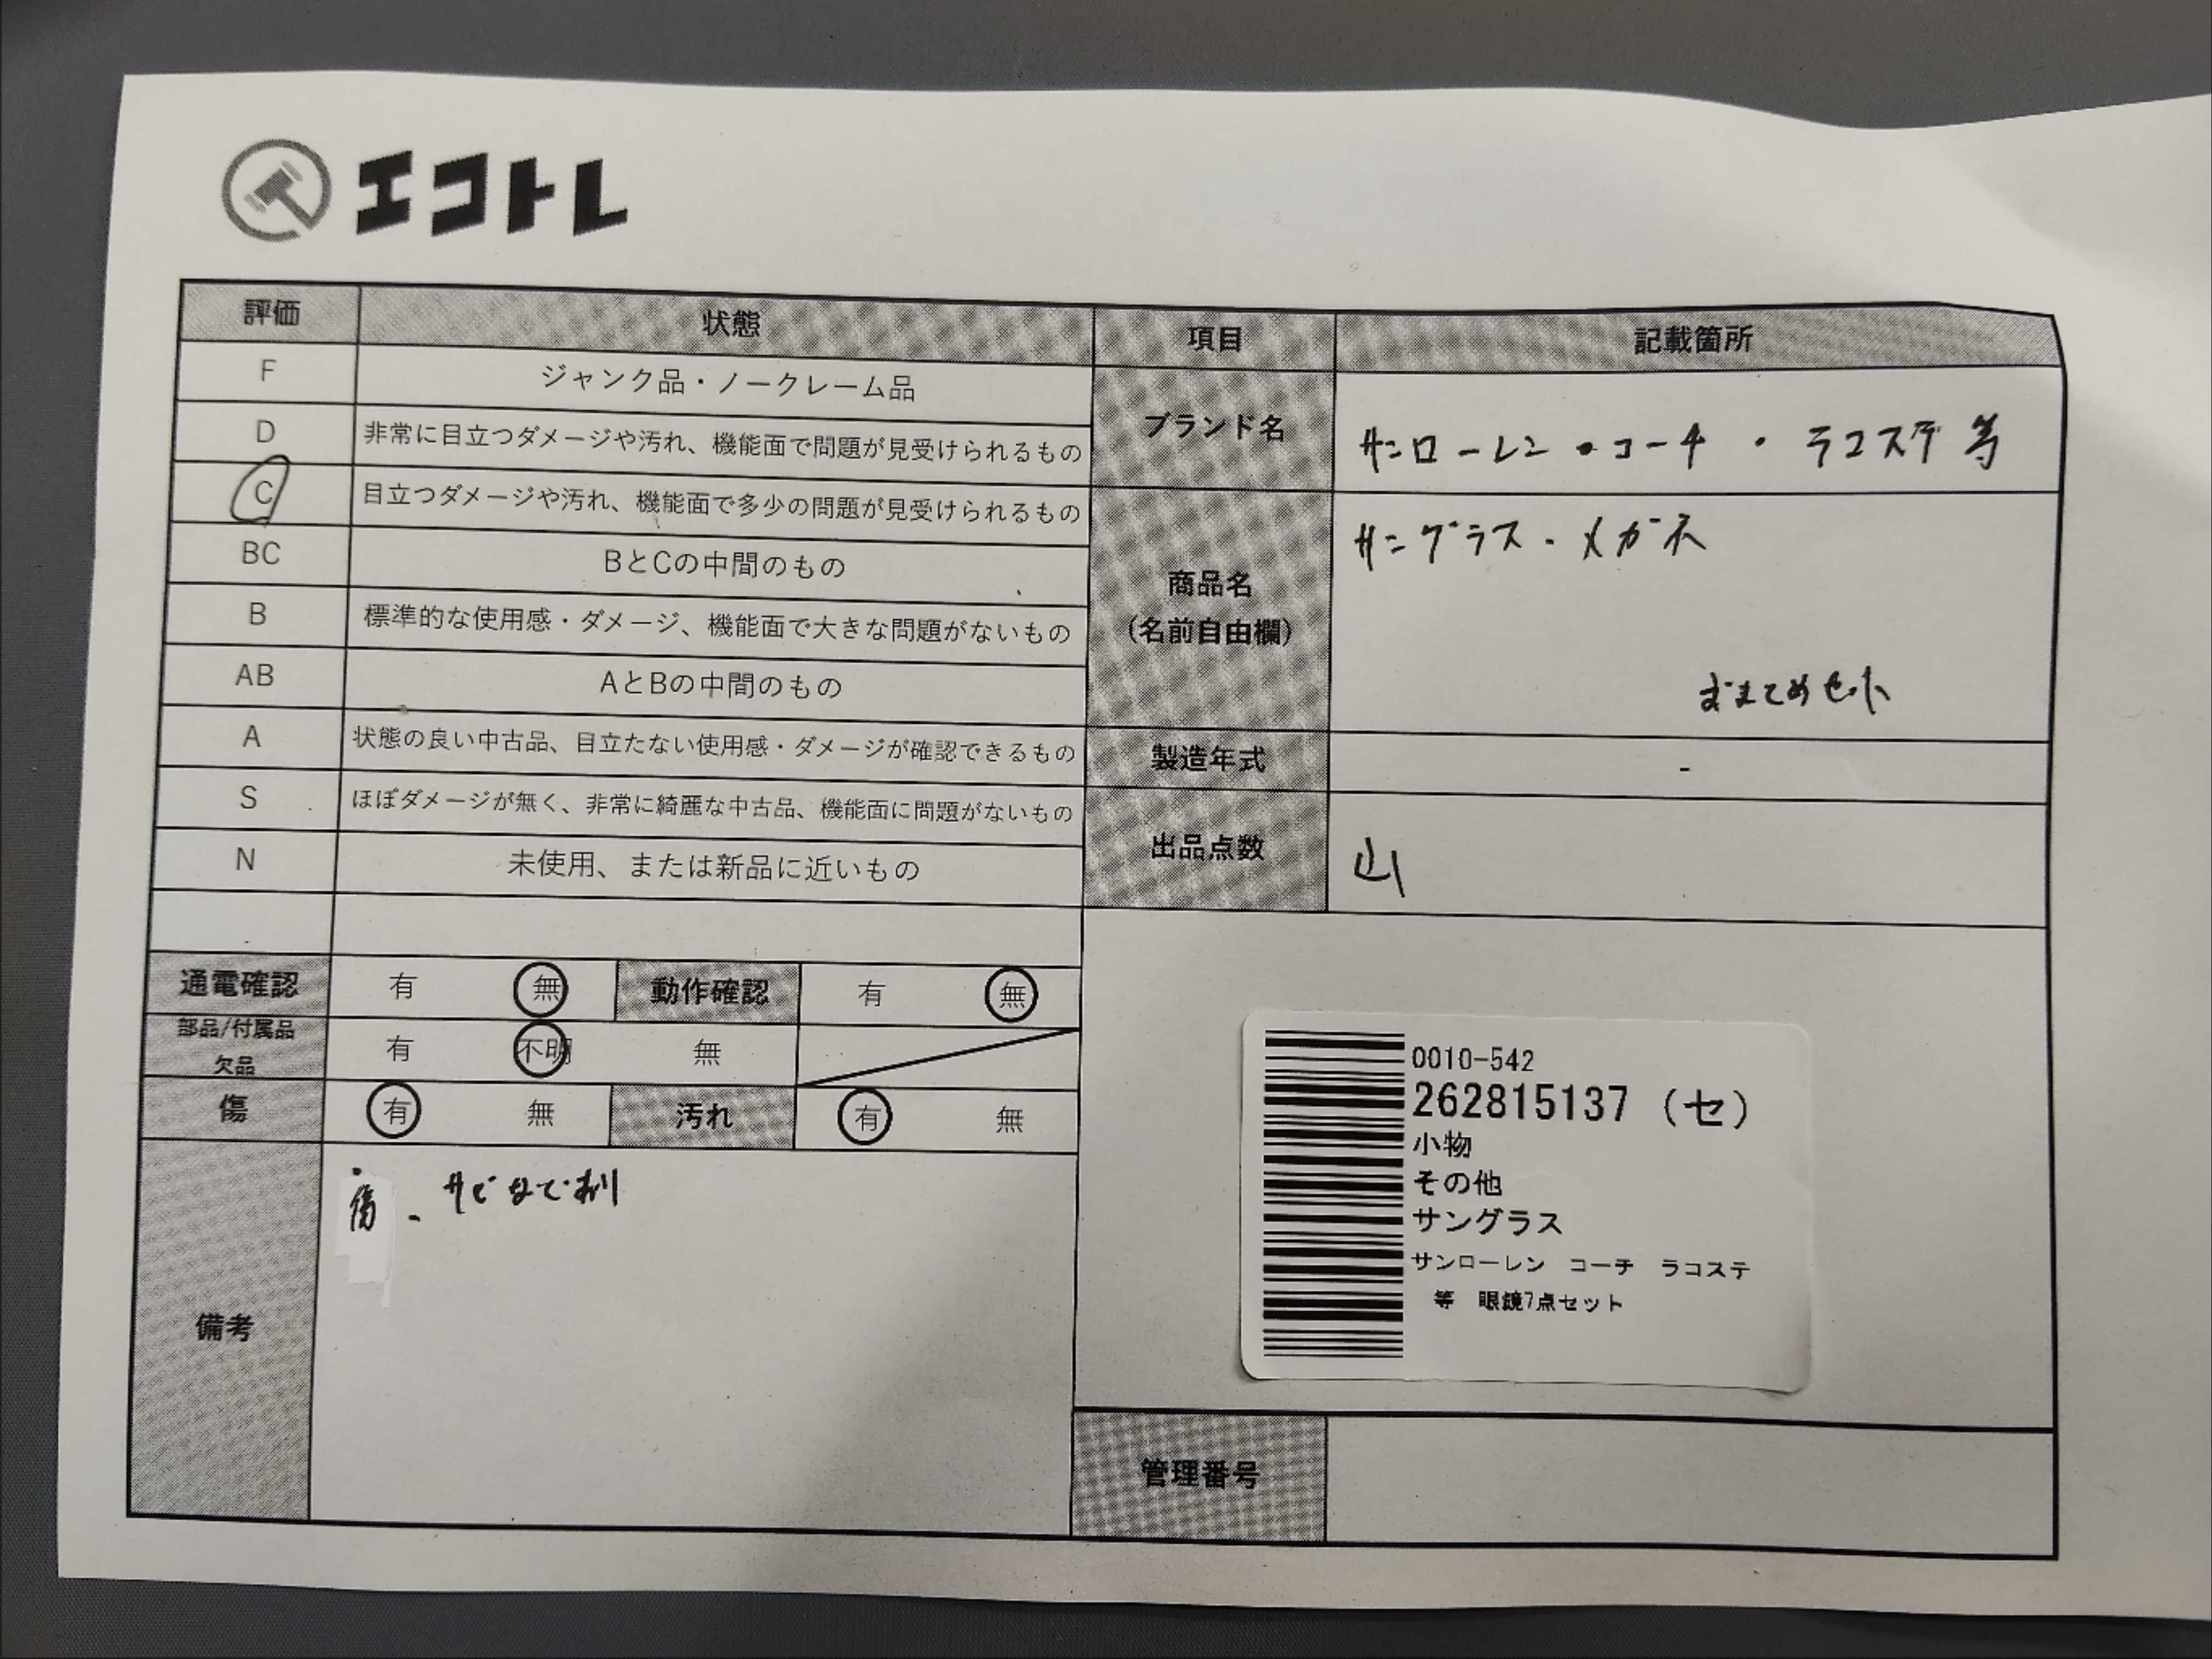 エコトレ
評価 状態
F ジャンク品・ノークレーム品
D 非常に目立つダメージや汚れ、機能面で問題が見受けられるもの
C 目立つダメージや汚れ、機能面で多少の問題が見受けられるもの
BC BとCの中間のもの
B 標準的な使用感・ダメージ、機能面で大きな問題がないもの
AB AとBの中間のもの
A 状態の良い中古品、目立たない使用感・ダメージが確認できるもの
S ほぼダメージが無く、非常に綺麗な中古品、機能面に問題がないもの
N 未使用、または新品に近いもの
通電確認 有 無 動作確認 有 無
部品/付属品
欠品 有 不明 無
傷 有 無 汚れ 有 無
備考
傷、サビなど有り
項目 記載箇所
ブランド名 サンローレン・コーチ・ラコステ等
商品名
(名前自由欄)
サングラス・メガネ
おまとめセット
製造年式 -
出品点数 山
0010-542
262815137 (セ)
小物
その他
サングラス
サンローレン コーチ ラコステ
等 眼鏡7点セット
管理番号